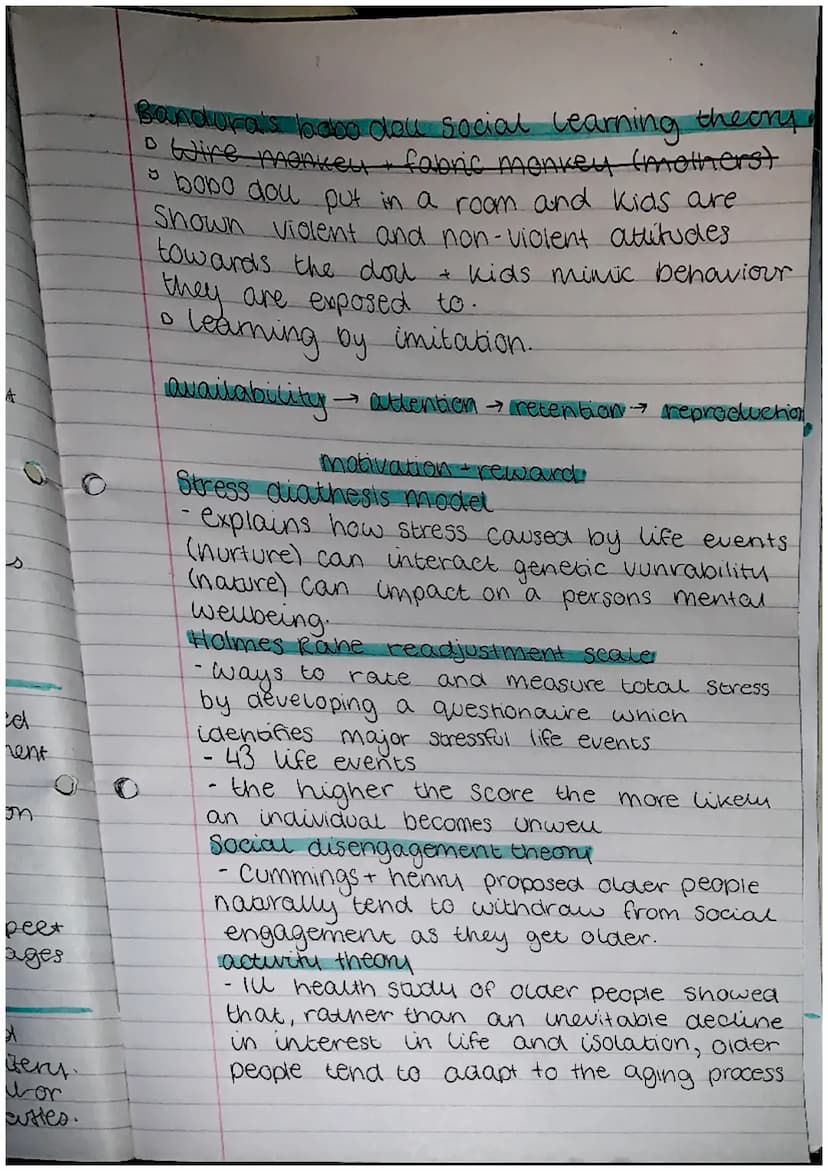 Bandura's bobo doll social learning theory
° Wire monkey + fabric monkey (mothers)
° bobo doll put in a room and kids are
shown violent and non-violent attitudes
towards the doll + kids mimic behaviour
they are exposed to.
° learning by imitation.
availability → attention → retention → reproduction
motivation + reward
Stress diathesis model
- explains how stress caused by life events
(nurture) can interact genetic vunrability
(nature) can impact on a persons mental
wellbeing.
Holmes Rahe readjustment scale
- ways to rate and measure total stress
by developing a questionaire which
identifies major stressful life events
- 43 life events
- the higher the score the more likely
an individual becomes unwell
Social disengagement theory
- Cummings + henry proposed older people
naturally tend to withdraw from social
engagement as they get older.
activity theory
- ill health study of older people showed
that, rather than an inevitable decline
in interest in life and isolation, older
people tend to adapt to the aging process